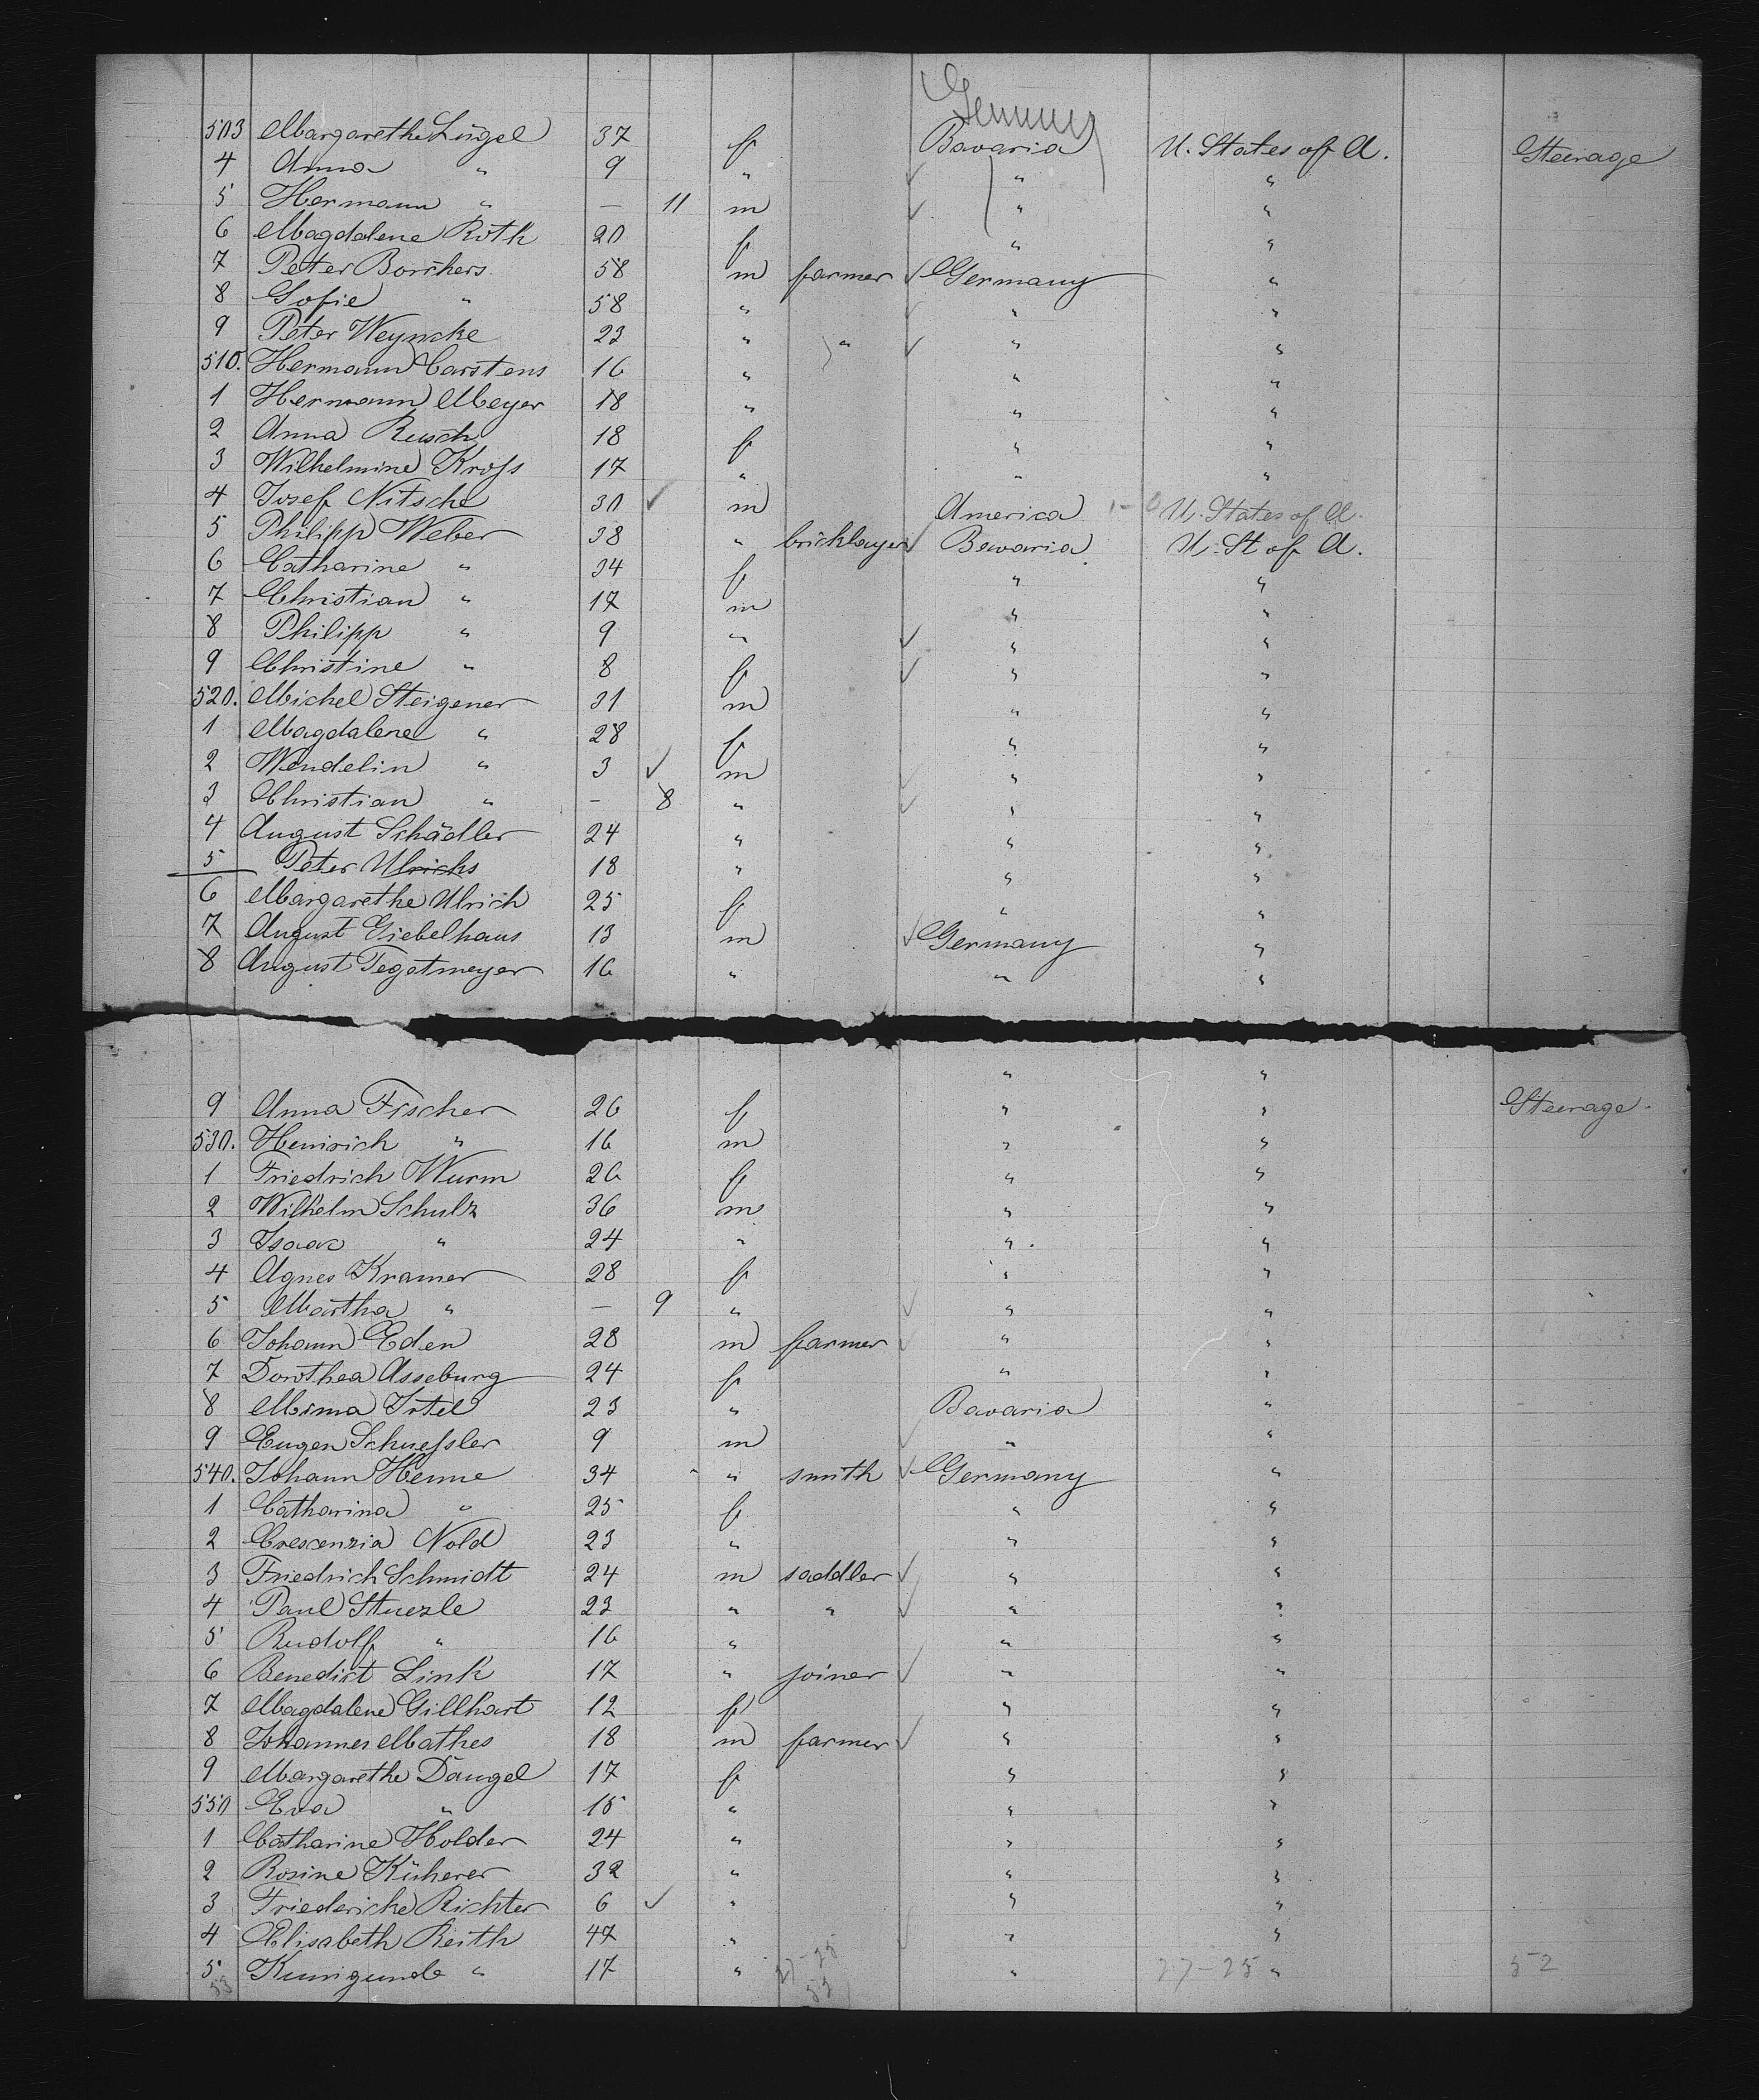 Germany
503 Margarethe Lingel 37 f Bavaria U. States of A. Steerage
4 Anna " 9 " ✓ " "
5 Hermann " — 11 m ✓ " "
6 Magdalene Roth 20 f " "
7 Peter Borchers 58 m farmer ✓ Germany "
8 Sofie " 58 " ✓ " "
9 Peter Weyncke 23 " " ✓ " "
510. Hermann Carstens 16 " " "
1 Hermann Meyer 18 " " "
2 Anna Rusch 18 f " "
3 Wilhelmine Kroſs 17 " " "
4 Josef Nitsche 30 ✓ m America U. States of A.
5 Philipp Weber 38 " bricklayer ✓ Bavaria U. St of A.
6 Catharine " 34 f " "
7 Christian " 17 m " "
8 Philipp " 9 " ✓ " "
9 Christine " 8 f ✓ " "
520. Michel Steigener 31 m " "
1 Magdalene " 28 f " "
2 Wendelin " 3 ✓ m ✓ " "
3 Christian " - 8 " ✓ " "
4 August Schädler 24 " " "
5 Peter Ulrichs 18 " " "
6 Margarethe Ulrich 25 f " "
7 August Giebelhaus 13 m ✓ Germany "
8 August Tegetmeyer 16 " " "
" "
9 Anna Fischer 26 f " " Steerage.
530. Heinrich " 16 m " "
1 Friedrich Wurm 26 f " "
2 Wilhelm Schulz 36 m " "
3 Isaac " 24 " " "
4 Agnes Kramer 28 f " "
5 Martha " — 9 " ✓ " "
6 Johann Eden 28 m farmer ✓ " "
7 Dorothea Asseburg 24 f " "
8 Mima Irtel 23 " Bavaria "
9 Eugen Schueſsler 9 m ✓ " "
540. Johann Henne 34 " smith ✓ Germany "
1 Catharina " 25 f " "
2 Crescenzia Nold 23 " " "
3 Friedrich Schmidt 24 m saddler ✓ " "
4 Paul Stuezle 23 " " ✓ " "
5 Rudolf " 16 " " "
6 Benedict Link 17 " joiner ✓ " "
7 Magdalene Gillhart 12 f " "
8 Johannes Mathes 18 m farmer ✓ " "
9 Margarethe Dangel 17 f " "
550 Eva " 15 " " "
1 Catharine Holder 24 " " "
2 Rosine Kücherer 32 " " "
3 Friedericke Richter 6 ✓ " " "
4 Elisabeth Reith 47 " ✓ " "
5 Kunigunde " 17 " " 27-25 " 52
53 27-25 53